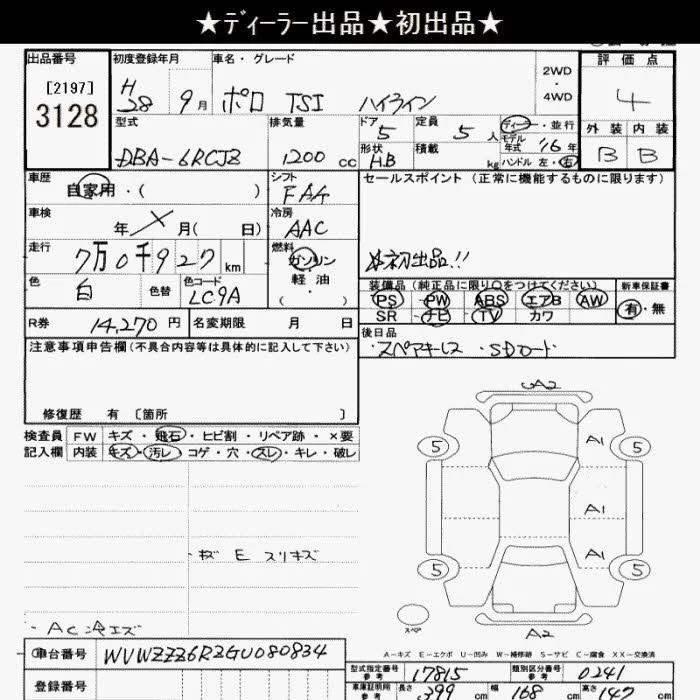 ★ディーラー出品★初出品★
出品番号 初度登録年月 車名・グレード 評価点
[2197]
3128
H28 9月 ポロ TSI ハイライン
2WD・4WD
4
型式 排気量 ドア 定員 ディーラー・並行
DBA-6RCJZ 1200cc 5 5人 モデル年式 '16年
形状 H.B 積載 kg ハンドル 左・右
外装 内装
B B
車歴 自家用・( )
シフト FAA
セールスポイント(正常に機能するものに限ります)
車検 年 月( 日)
冷房 AAC
走行 7万0千927km
燃料 ガソリン・軽油・( )
☆初出品!!
色 白 色替 色コード LC9A
装備品(純正品に限り○をつけてください) 新車保証書
PS PW ABS エアB AW
SR ナビ TV カワ
有・無
R券 14,270円 名変期限 月 日
後日品
・スペアキーレス ・SDカード
注意事項申告欄(不具合内容等は具体的に記入して下さい)
修復歴 有 [箇所 ]
検査員 FW キズ・飛石・ヒビ割・リペア跡・×要
記入欄 内装 キズ・汚レ・コゲ・穴・スレ・キレ・破レ
A2
5 A1 5
A1
5 A1 5
スペア
A2
・キズ E スリキズ
・AC冷エズ
A-キズ E-エクボ U-凹み W-補修跡 S-サビ C-腐食 XX-交換済
車台番号 WVWZZZ6RZGU080834
登録番号
型式指定番号 参考 17815 類別区分番号 参考 0241
車庫証明用 参考 長さ 399cm 幅 168cm 高さ 147cm